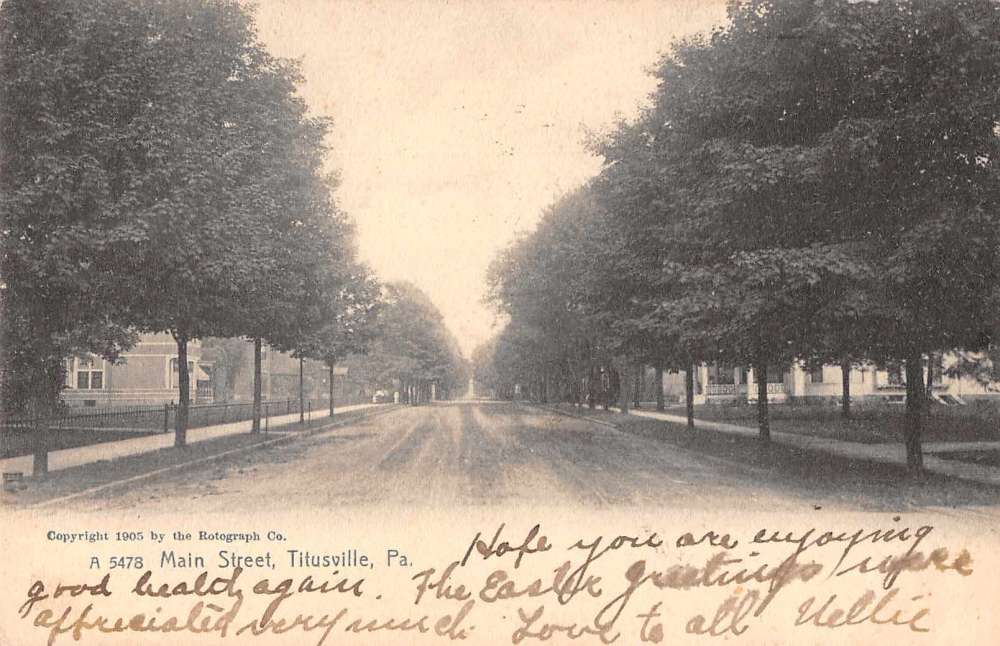 Copyright 1905 by the Rotograph Co.
A 5478 Main Street, Titusville, Pa.
Hope you are enjoying
good health again. The Easter Greetings were
appreciated very much Love to all Nellie